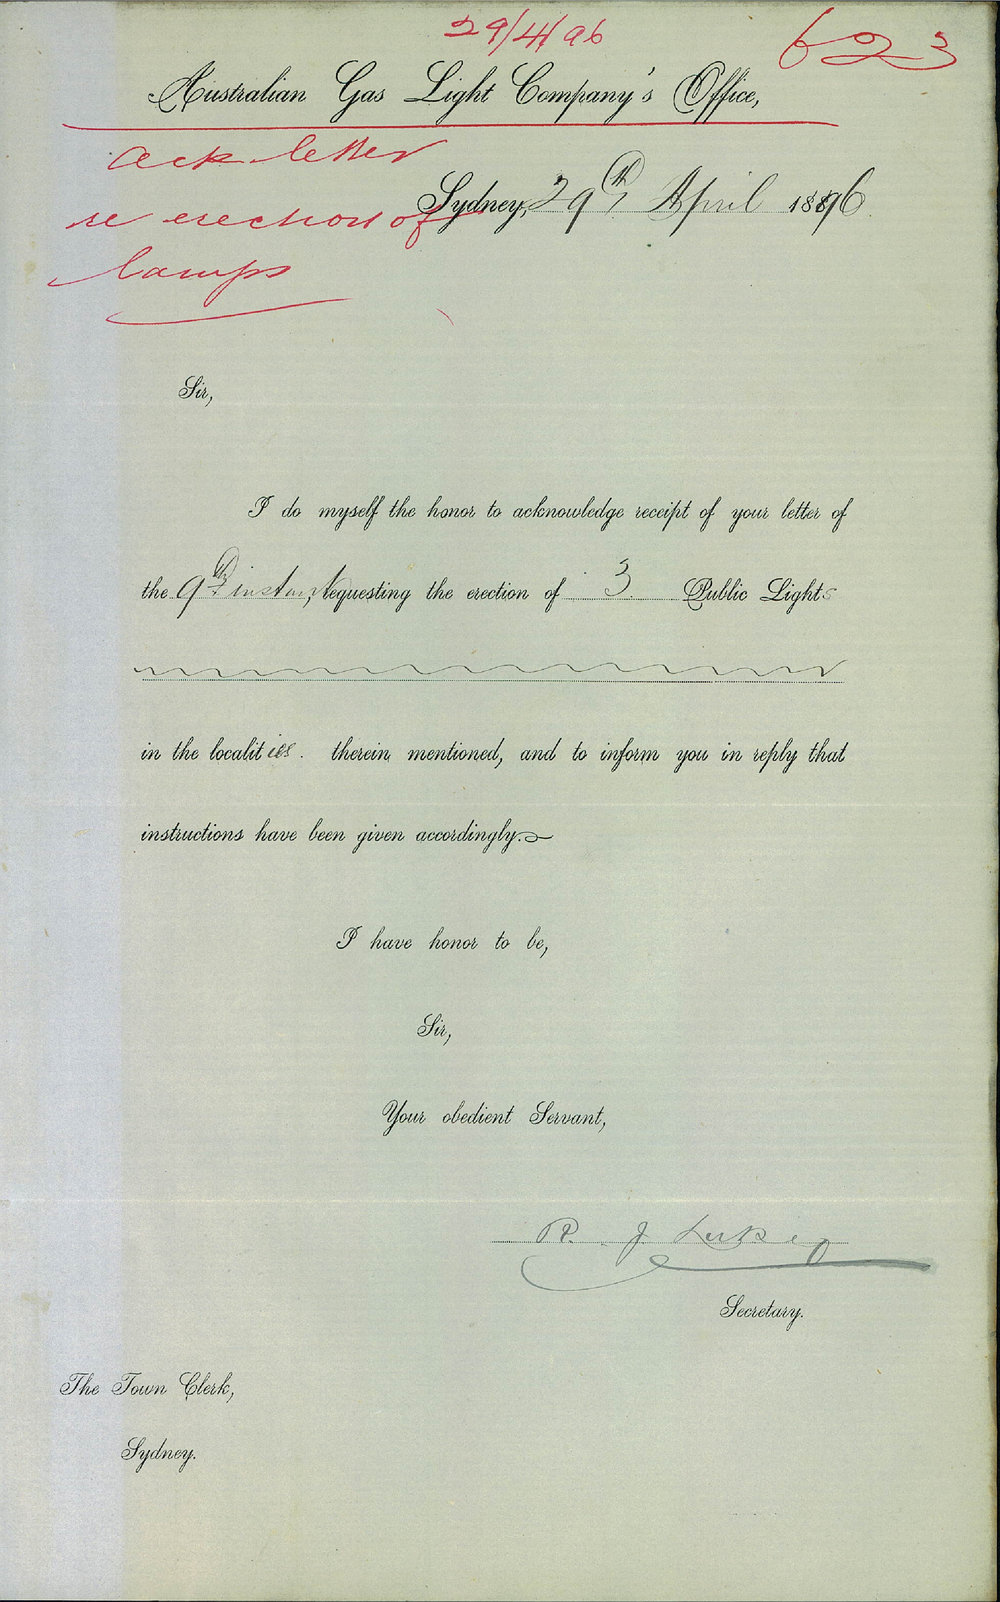 29/4/96
623
Australian Gas Light Company's Office,
Ack letter
Sydney, 29th April 1896
re erection of
lamps
Sir,
I do myself the honor to acknowledge receipt of your letter of
the 9th instant, requesting the erection of 3 Public Lights
in the localities. therein mentioned, and to inform you in reply that
instructions have been given accordingly.
I have honor to be,
Sir,
Your obedient Servant,
R. J. Lukey
Secretary.
The Town Clerk,
Sydney.